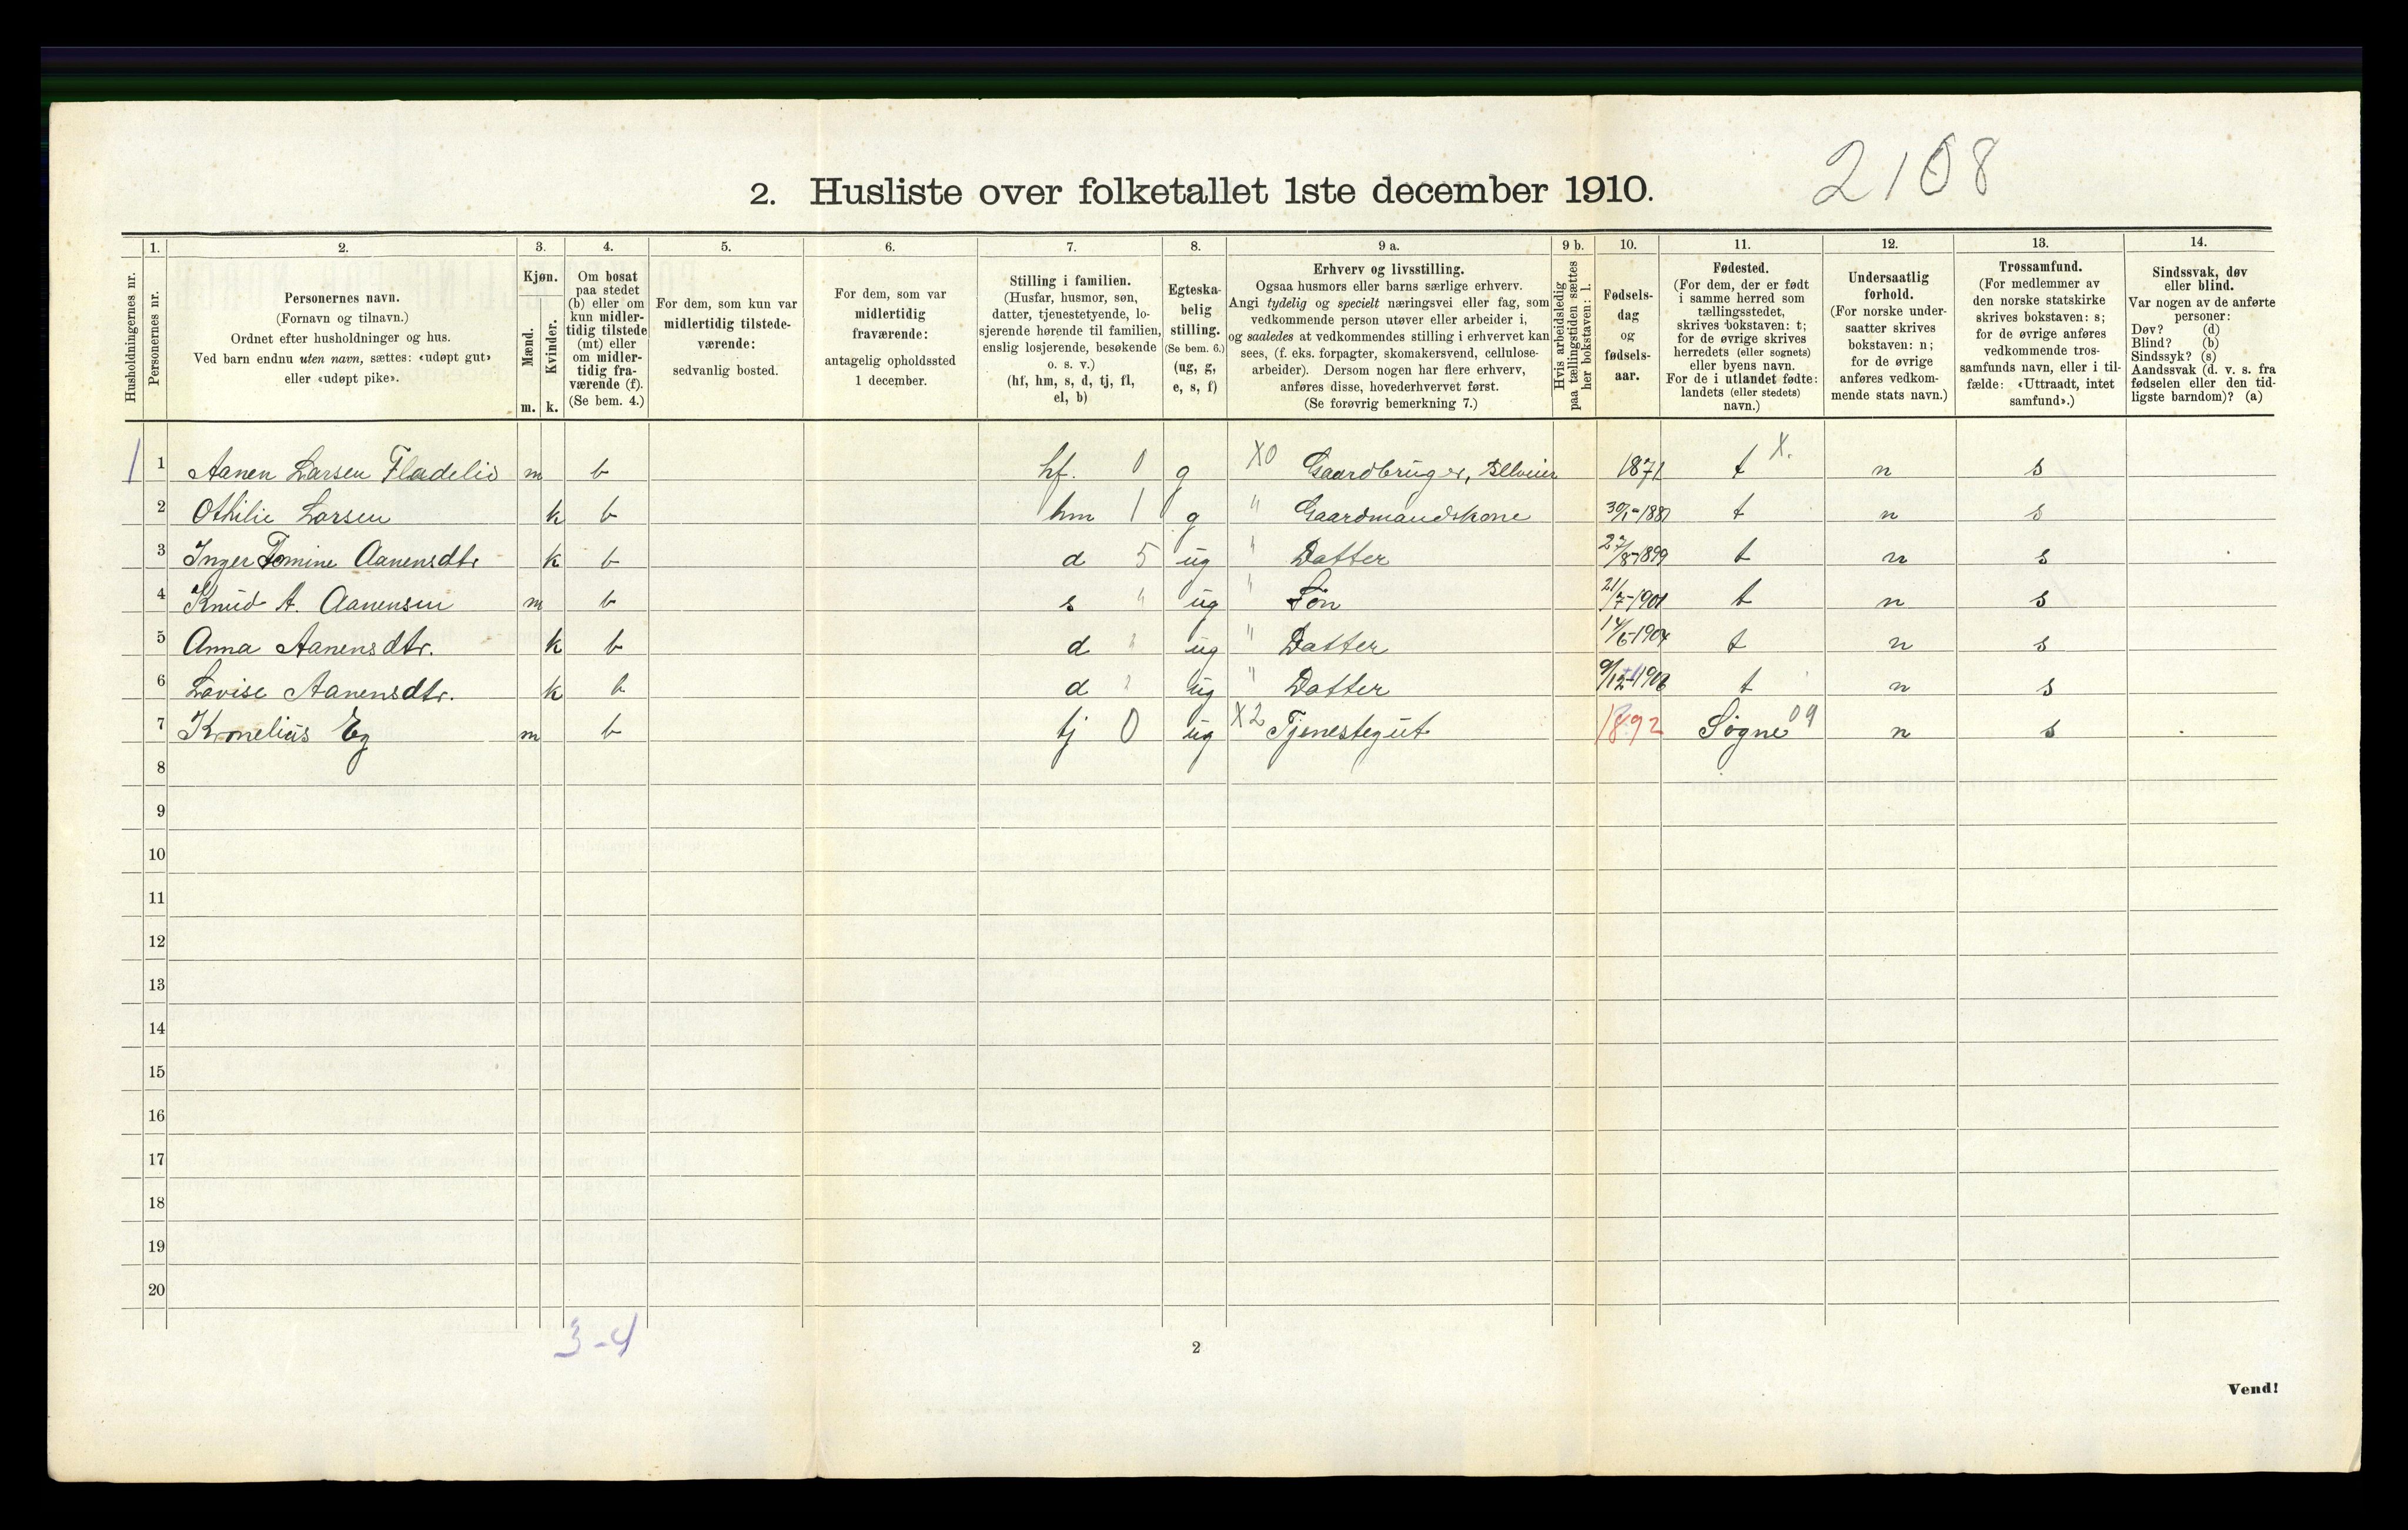 2108
2. Husliste over folketallet 1ste december 1910.
Husholdningernes nr.
1.
Personernes nr.
2.
Personernes navn.
(Fornavn og tilnavn.)
Ordnet efter husholdninger og hus.
Ved barn endnu uten navn, sættes: «udøpt gut»
eller «udøpt pike».
3.
Kjøn.
Mænd.
Kvinder.
m. k.
4.
Om bosat
paa stedet
(b) eller om
kun midler-
tidig tilstede
(mt) eller
om midler-
tidig fra-
værende (f).
(Se bem. 4.)
5.
For dem, som kun var
midlertidig tilstede-
værende:
sedvanlig bosted.
6.
For dem, som var
midlertidig
fraværende:
antagelig opholdssted
1 december.
7.
Stilling i familien.
(Husfar, husmor, søn,
datter, tjenestetyende, lo-
sjerende hørende til familien,
enslig losjerende, besøkende
o. s. v.)
(hf, hm, s, d, tj, fl,
el, b)
8.
Egteska-
belig
stilling.
(Se bem. 6.)
(ug, g,
e, s, f)
9 a.
Erhverv og livsstilling.
Ogsaa husmors eller barns særlige erhverv.
Angi tydelig og specielt næringsvei eller fag, som
vedkommende person utøver eller arbeider i,
og saaledes at vedkommendes stilling i erhvervet kan
sees, (f. eks. forpagter, skomakersvend, cellulose-
arbeider). Dersom nogen har flere erhverv,
anføres disse, hovederhvervet først.
(Se forøvrig bemerkning 7.)
9 b.
Hvis arbeidsledig
paa tællingstiden sættes
her bokstaven: l.
10.
Fødsels-
dag
og
fødsels-
aar.
11.
Fødested.
(For dem, der er født
i samme herred som
tællingsstedet,
skrives bokstaven: t;
for de øvrige skrives
herredets (eller sognets)
eller byens navn.
For de i utlandet fødte:
landets (eller stedets)
navn.)
12.
Undersaatlig
forhold.
(For norske under-
saatter skrives
bokstaven: n;
for de øvrige
anføres vedkom-
mende stats navn.)
13.
Trossamfund.
(For medlemmer av
den norske statskirke
skrives bokstaven: s;
for de øvrige anføres
vedkommende tros-
samfunds navn, eller i til-
fælde: «Uttraadt, intet
samfund».)
14.
Sindssvak, døv
eller blind.
Var nogen av de anførte
personer:
Døv? (d)
Blind? (b)
Sindssyk? (s)
Aandssvak (d. v. s. fra
fødselen eller den tid-
ligste barndom)? (a)
1 1 Aanen Larsen m b hf. 0 g X0 Gaardbruger, 1871 t X. n s
2 Othilie Larsen k b hm 1 g " Gaardmandskone t n s
3 Inger Tomine Aanensdtr k b d 5 ug " Datter 27/8-1899 t n s
4 Knud A. Aanensen m b s " ug " Søn 21/7-1901 t n s
5 Anna Aanensdtr. k b d " ug " Datter 14/6-1904 t n s
6 Lovise Aanensdtr. k b d " ug " Datter t n s
7 Kornelius Eg m b tj 0 ug X2 Tjenestegut 1892 Søgne 09 n s
8
9
10
11
12
13
14
15
16
17
18
19
20
3-4
2
Vend!